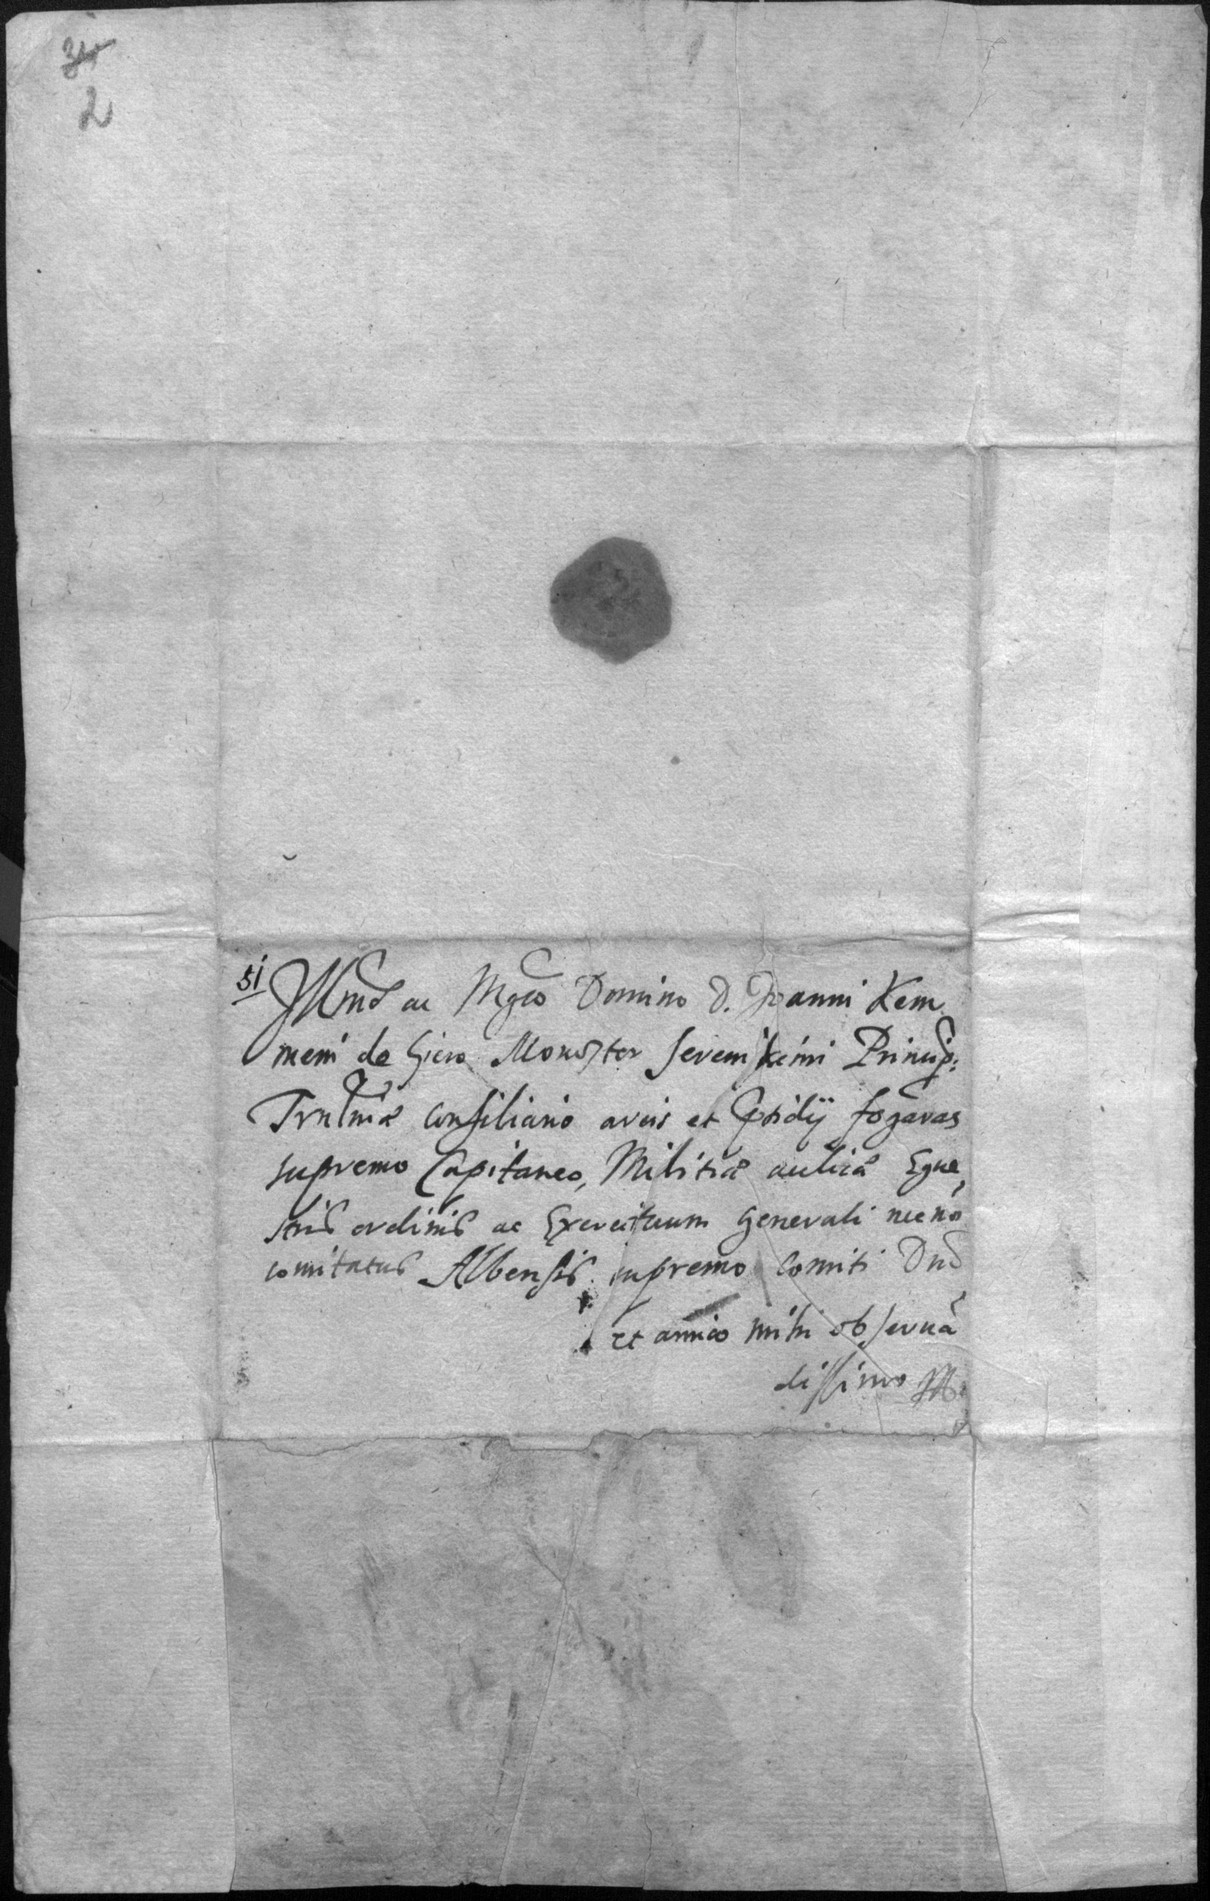 2
51
Illmo ac Mgco Domino D. Joanni Kem
meni de Giero Monostor Serenissimi Princip:
Trnlniae Consiliario arcis et Psidij fogaras
supremo Capitaneo, Militiae aulicae Eque
stris ordinis ac Exercituum Generali necnō
comitatus Albensis supremo Comiti Dnō
et amico mihi obseruā
dissimo